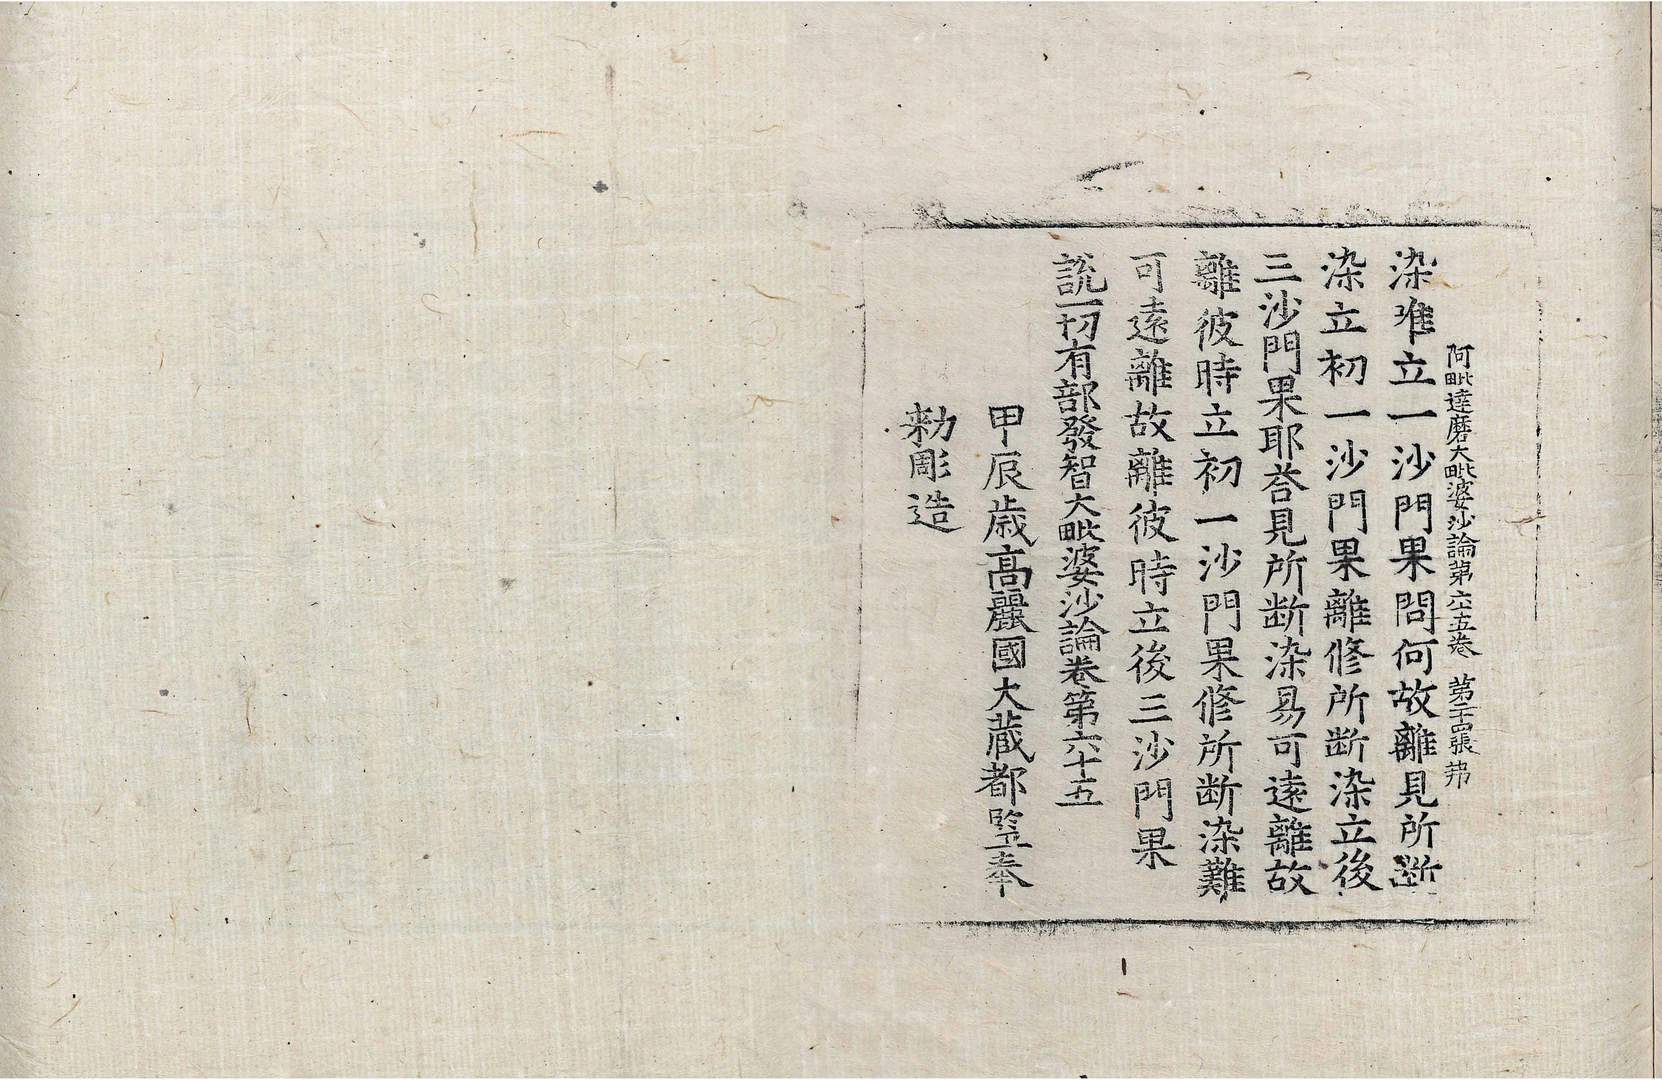 阿毗達磨大毗婆沙論第六十五卷 第二十四張 弗
染唯立一沙門果問何故離見所斷
染立初一沙門果離修所斷染立後
三沙門果耶荅見所斷染易可遠離故
離彼時立初一沙門果修所斷染難
可遠離故離彼時立後三沙門果
說一切有部發智大毗婆沙論卷第六十五
甲辰歳高麗國大藏都監奉
勑彫造